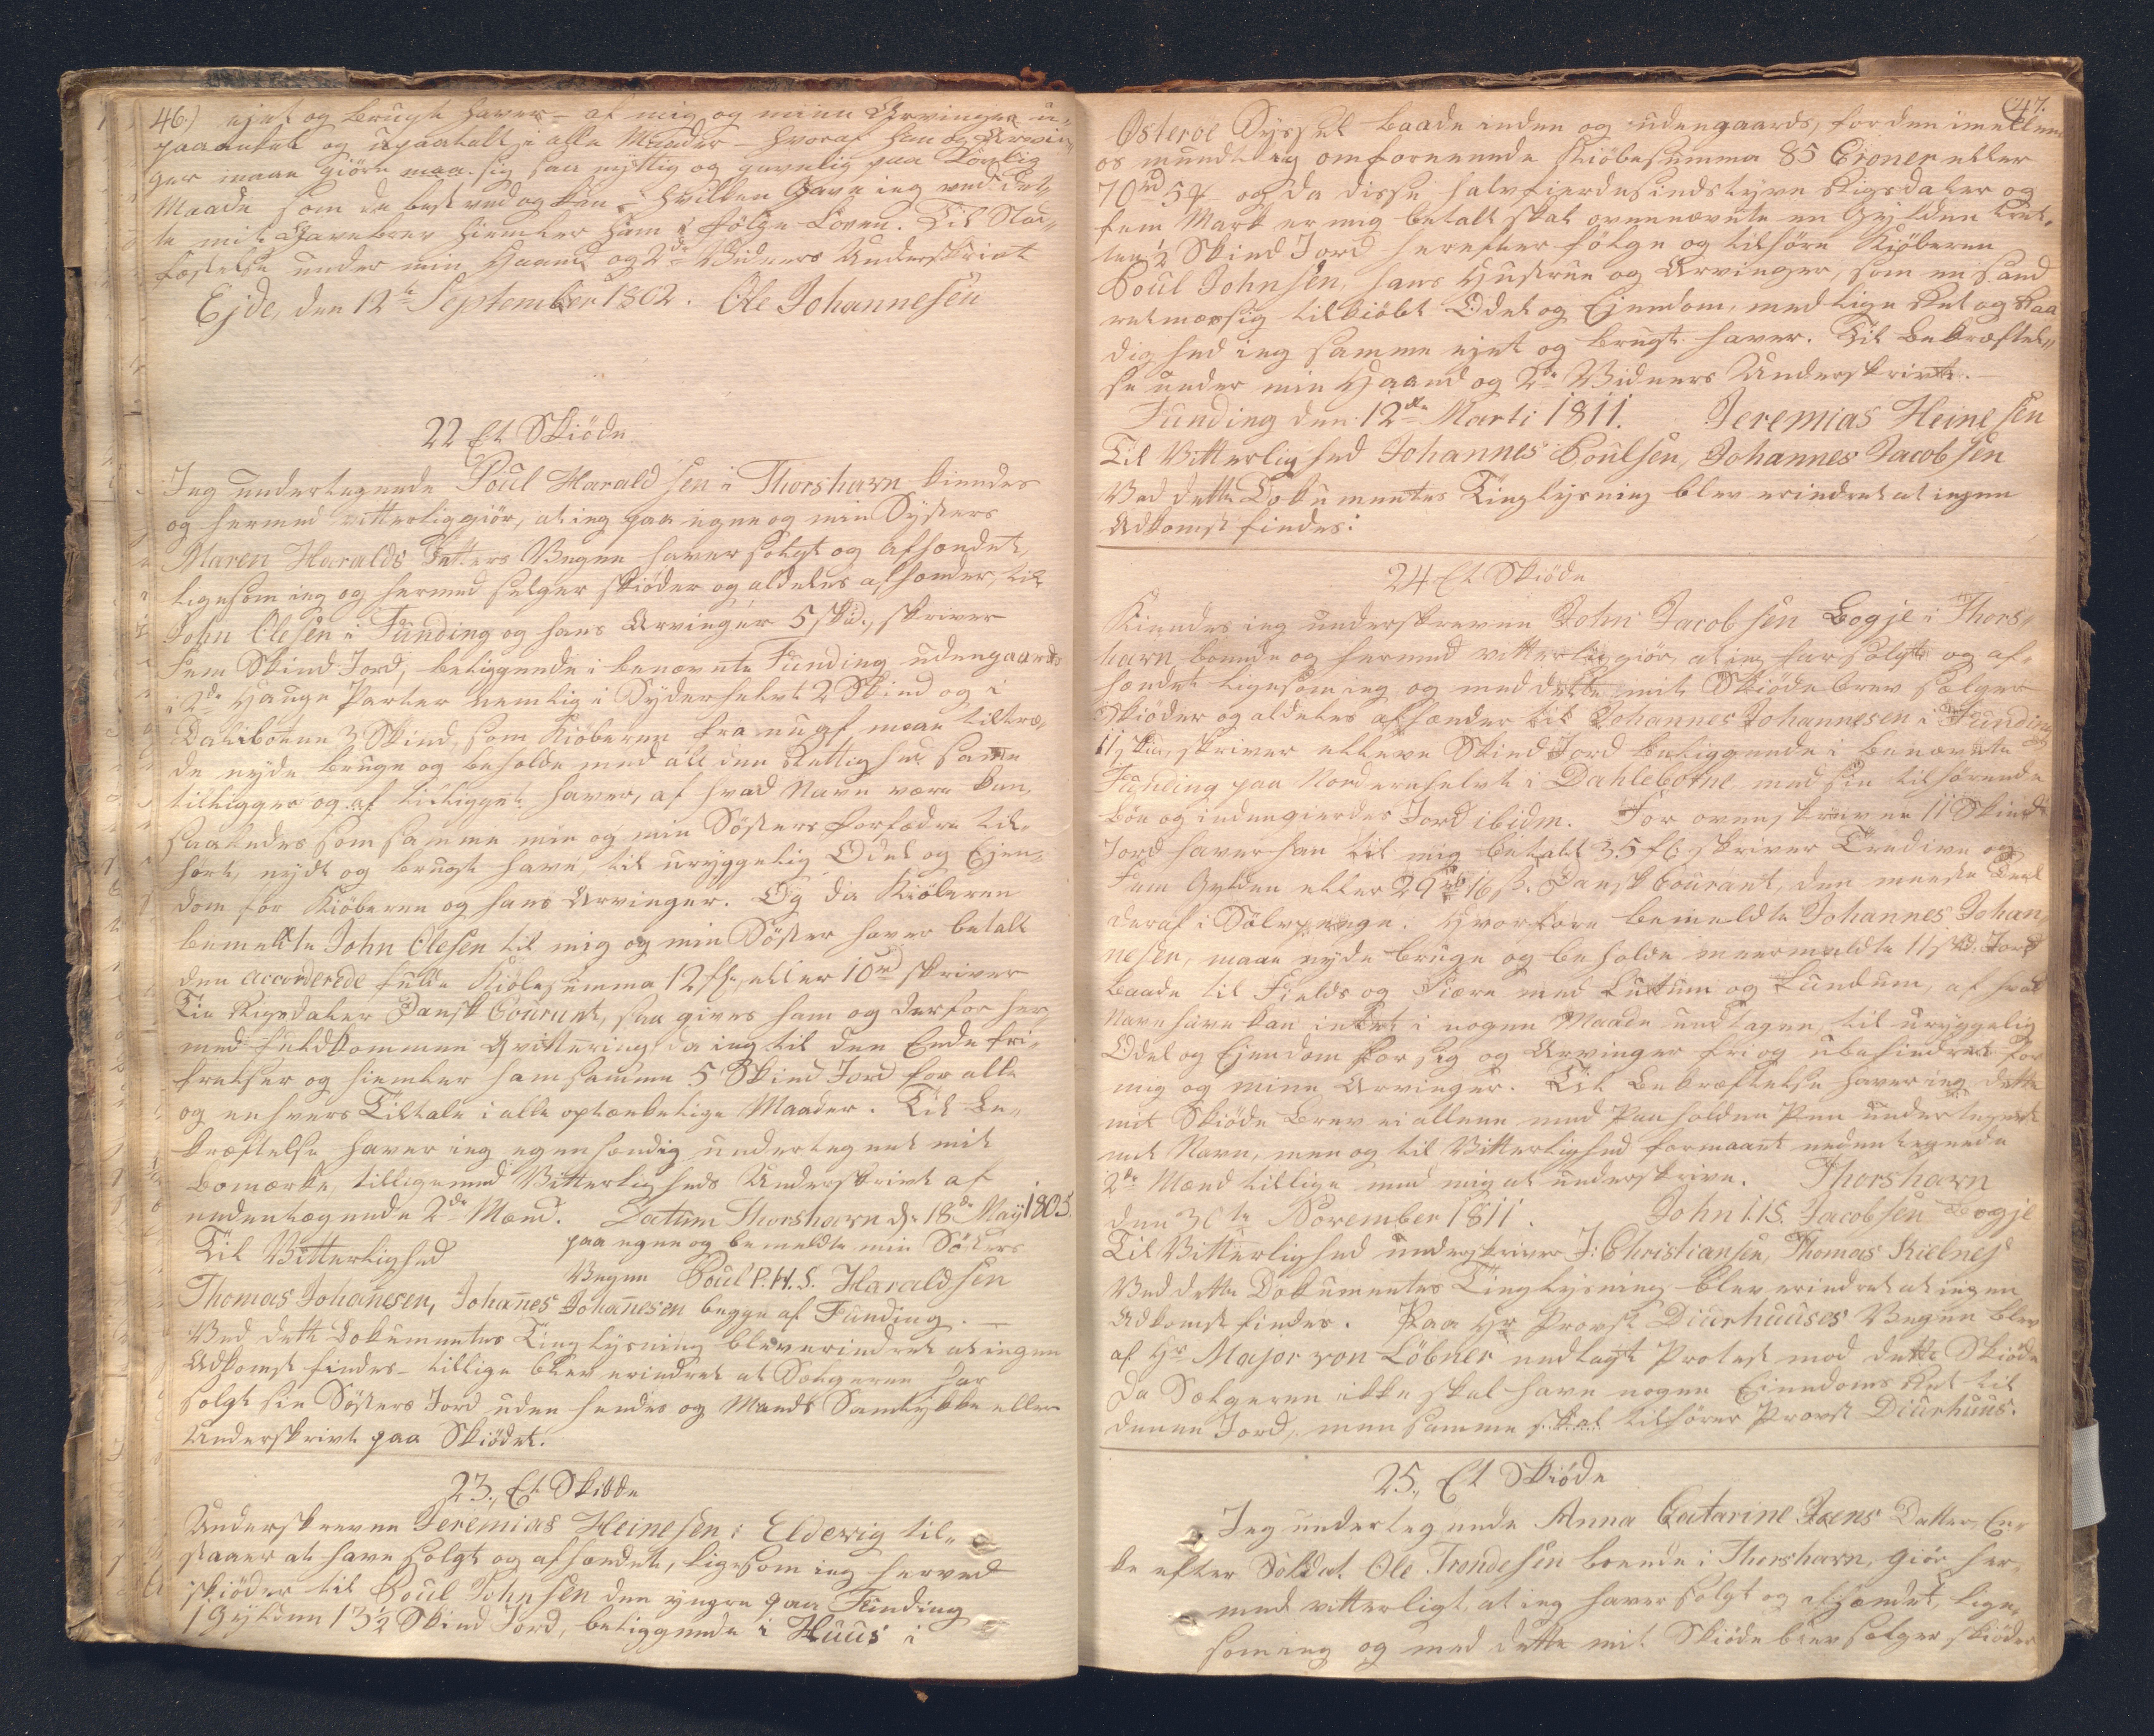 46.) ejet og brugt haver - af mig og mine Arvinger u-
paaanket og upaatalt i alle Maader - hvoraf han og Arvin-
ger maae giöre sig saa nyttig og gavnlig paa Lovlig
Maade som de best ved og kan, hvilken Gave ieg ved det-
te mit Gavebrev hiemler ham i fölge Loven. Til Stad-
fæstelse under min Haand og 2de Vidners Underskrivt
Ejde, den 12te September 1802. Ole Johannesen
22 Et Skiöde
Jeg undertegnede Poul Harald sen i Thorshavn kiendes
og hermed vitterliggiör, at ieg paa egne og min Systers
Maren Haralds Datters Vegne haver solgt og afhændet,
ligesom ieg og hermed selger skiöder og aldeles afhænder, til
John Olesen i Funding og hans Arvinger 5 skd., skriver
Fem Skind Jord, beliggende i benævnte Funding udengaards
i 2de Hauge Parter nemlig i Syderhelvt 2 Skind og i
Daliboene 3 Skind, som Kiöberen fra nu af maae tiltræ-
de nyde bruge og beholde med all den Rettighed samme
tilligger og af tilligget haver, af hvad Navn være kan,
saaledes som samme min og min Sösters Forfædre til-
hört, nydt og brugt have, til uryggelig Odel og Ejen-
dom for Kiöberen og hans Arvinger. Og da Kiöberen
bemeldte John Olesen til mig og min Söster haver betalt
den accorderede fulde Kiöbesumma 12 fl. eller 10rd skriver
Tie Rigsdaler Dansk Courant, saa gives ham og derfor her-
med fuldkommen Qvittering da ieg til den Ende fri-
frelser og hiemler ham samme 5 Skind Jord for alle
og enhvers Tiltale i alle optænkelige Maader. Til Be-
kræftelse haver ieg egenhændig undertegnet mit
Bomærke, tilligemed Vitterligheds Underskrivt af
nedentegnede 2de Mænd. Datum Thorshavn d. 18de May 1805.
Til Vitterlighed paa egne og bemeldte min Sösters
Vegne Poul P.H.S. Haraldsen
Thomas Johañesen, Johañes Johañesen begge af Funding. -
Ved dette Dokumentes Tinglysning blev erindret at ingen
Adkomst findes - tillige blev erindret at Sælgeren har
solgt sin Sösters Jord uden hendes og Mands Samtykke eller
Underskrivt paa Skiödet.
23., Et Skiöde
Underskrevne Jeremias Heinesen i Eldevig til-
staaer at have solgt og afhændet, ligesom ieg herved
skiöder til Poul Johnsen den yngre paa Funding
1 Gylden 13½ Skind Jord, beliggende i Huus i
47.
Österöe Syssel baade inden og udengaards, for den imellem
os mundtlig omforenende Kiöbesumma 85 Croner eller
70rd 5 ₰ og da disse halvfierdesindstyve Rigsdaler og
fem Mark er mig betalt skal ovennævnte en Gylden tret-
ten ½ Skind Jord herefter fölge og tilhöre Kiöberen
Poul Johnsen, hans Hustrue og Arvinger, som en sand
retmæssig tilkiöbt Odel og Ejendom, med lige Ret og Raa
dighed ieg samme ejet og brugt haver. Til Bekræftel-
se under min Haand og 2de Vidners Underskrivt. -
Funding den 12te Marti 1811. Jeremias Heine sen
Til Vitterlighed Johannes Poulsen, Johannes Jacob sen
Ved dette Dokumentes Tinglysning blev erindret at ingen
Adkomst findes:
24 Et Skiöde
Kiendes ieg underskrevne John Jacob sen Bogje i Thors-
havn boende og hermed vitterliggiör, at ieg har solgt og af-
hændet ligesom ieg og med dette mit Skiödebrev sælger
Skiöder og aldeles afhænder til Johannes Johannesen i Funding
11 skd., skriver elleve Skind Jord beliggende i benævnte
Funding paa Nordernhelvt i Dahlebotne med sin tilhörende
böe og indengierdes Jord ibidm. For ovenskrevne 11 Skind
Jord haver han til mig betalt 35 fl. skriver Tredive og
Fem Gylden eller 29rd 16 ß. Dansk Courant, den meeste Deel
deraf i Sölvpenge. Hvorfore bemeldte Johannes Johan
nesen, maae nyde bruge og beholde meermeldte 11 skd. Jord
baade til Fields og Fiære med Luttum og Lundum, af hvad
Navn have kan intet i nogen Maade undtagen, til uryggelig
Odel og Ejendom for sig og Arvinger fri og ubehindret for
mig og mine Arvinger. Til Bekræftelse haver ieg dette
mit Skiöde Brev ei allene med Paaholden Pen undertegnet
mit Navn, men og til Vitterlighed formaaet nedentegnede
2de Mænd tillige med mig at underskrive. Thorshavn
den 30te November 1811. John I.I.S. Jacobsen Bogje
Til Vitterlighed underskriver J: Christiansen, Thomas Kielnes
Ved dette Dokumentes Tinglysning blev erindret at ingen
Adkomst findes. Paa Hr Provst Diurhuuses Vegne blev
af Hr Major von Löbner nedlagt Protest mod dette Skiöde
da Sælgeren ikke skal have nogen Eiendoms Ret til
denne Jord, men samme skal tilhörer Provst Diurhuus.
25., Et Skiöde
Jeg undertegnede Anna Catarine Joens Datter, En-
ke efter Soldat Ole Trondesen boende i Thorshavn, giör her-
med vitterligt, at ieg haver solgt og afhændet, lige-
som ieg og med dette mit Skiödebrev sælger, skiöder